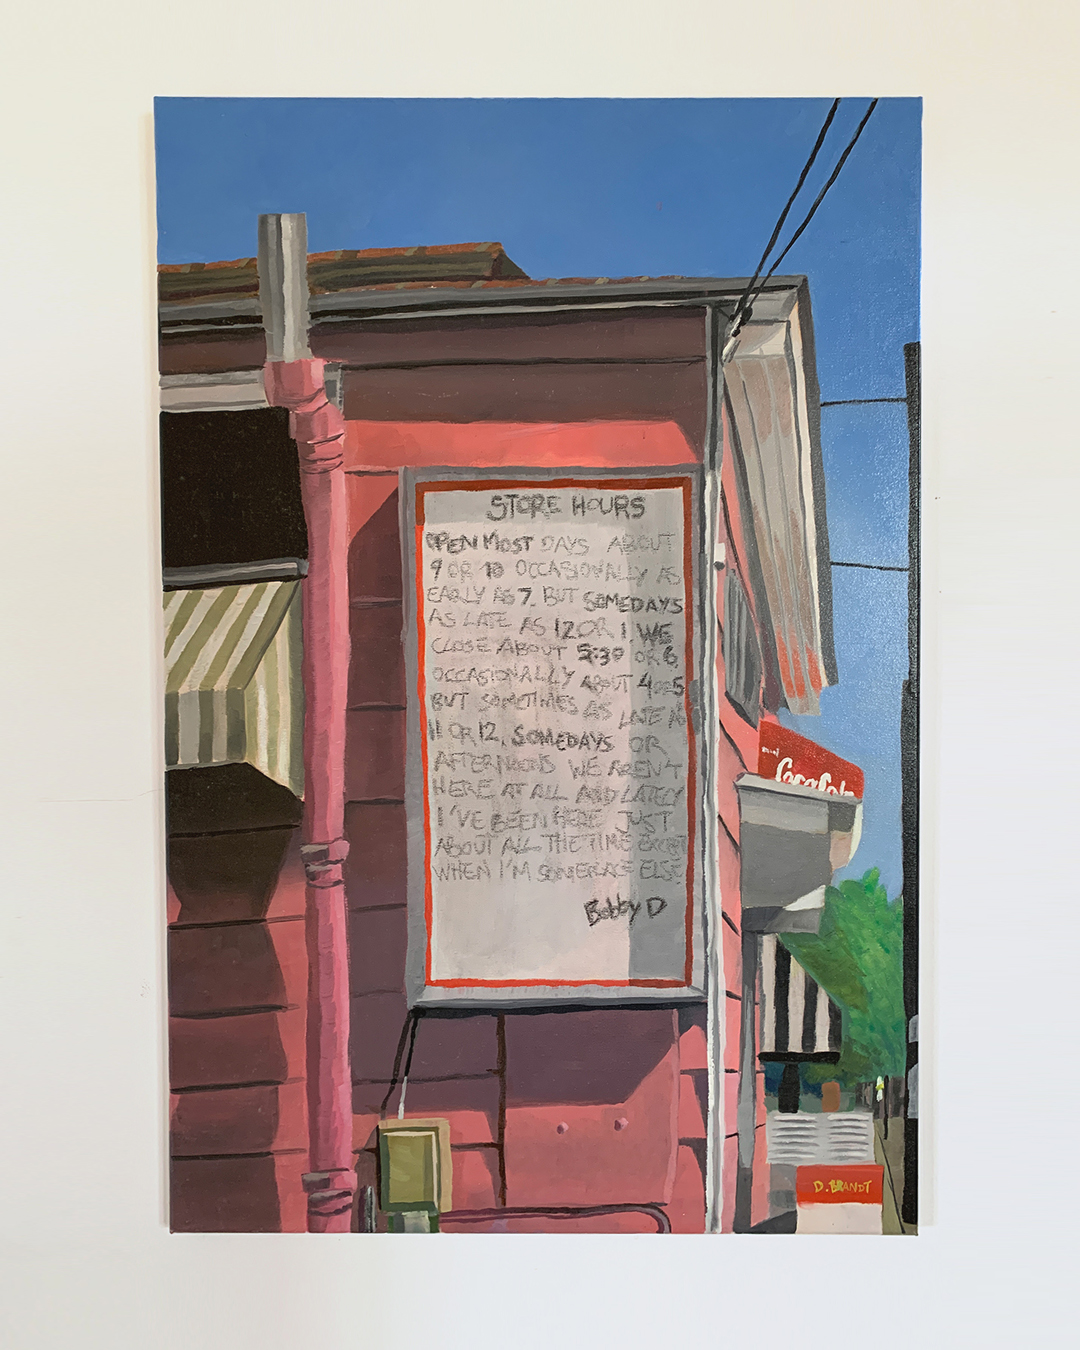 STORE HOURS
OPEN MOST DAYS ABOUT
9 OR 10 OCCASIONALLY AS
EARLY AS 7. BUT SOMEDAYS
AS LATE AS 12 OR 1. WE
CLOSE ABOUT 5:30 OR 6
OCCASIONALLY ABOUT 4 OR 5
BUT SOMETIMES AS LATE AS
11 OR 12, SOMEDAYS OR
AFTERNOONS WE AREN'T
HERE AT ALL AND LATELY
I'VE BEEN HERE JUST
ABOUT ALL THE TIME EXCEPT
WHEN I'M SOMEPLACE ELSE
Bobby D
Coca Cola
D. BRANDT